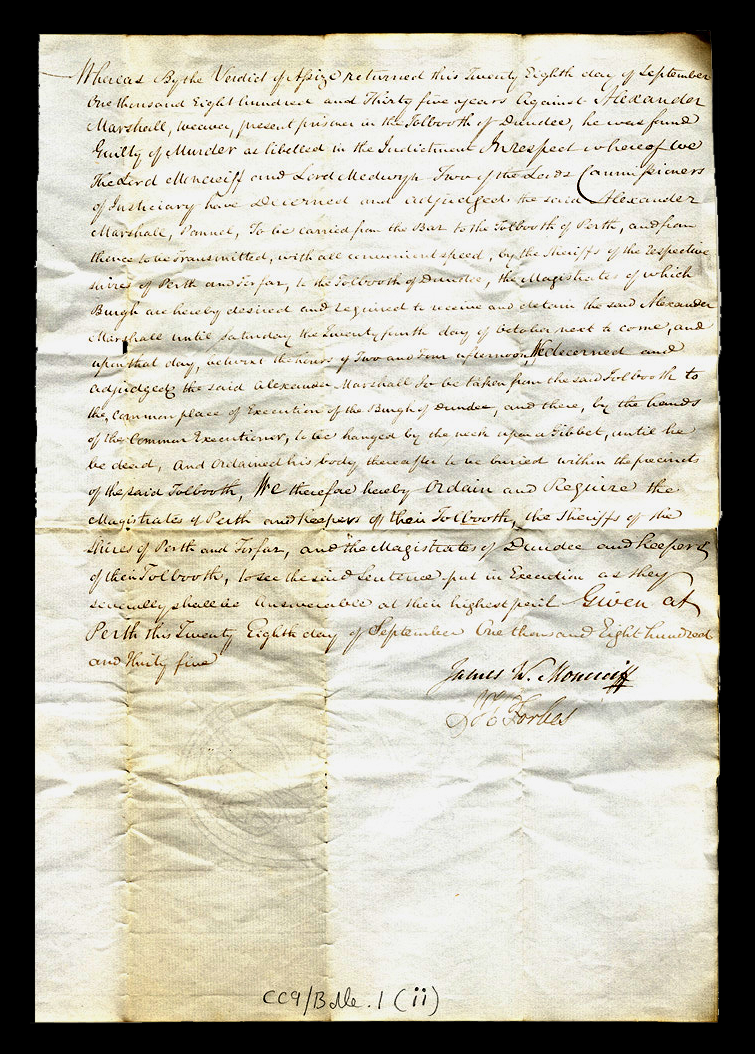 Whereas By the Verdict of Assize returned this Twenty Eighth day of September
One thousand Eight hundred and Thirty five years Against Alexander
Marshall, weaver, present prisoner in the Tolbooth of Dundee, he was found
Guilty of Murder as libelled in the Indictment In respect whereof We
The Lord Moncreiff and Lord Medwyn Two of the Lords Commissioners
of Justiciary have Decerned and adjudged the said Alexander
Marshall, Pannel, To be carried from the Bar to the Tolbooth of Perth, and from
thence to be Transmitted, with all convenient speed, by the Sheriffs of the respective
shires of Perth and Forfar, to the Tolbooth of Dundee, the Magistrates of which
Burgh are hereby desired and required to receive and detain the said Alexander
Marshall until Saturday the Twenty fourth day of October next to come, and
upon that day, betwixt the hours of Two and Four afternoon, We decerned and
adjudged the said Alexander Marshall To be taken from the said Tolbooth to
the Common place of Execution of the Burgh of Dundee, and there, by the hands
of the Common Executioner, to be hanged by the neck upon a Gibbet, until he
be dead, And Ordained his body thereafter to be buried within the precincts
of the said Tolbooth, We therefore hereby Ordain and Require the
Magistrates of Perth and keepers of their Tolbooth, the Sheriffs of the
Shires of Perth and Forfar, and the Magistrates of Dundee and keepers
of their Tolbooth, to see the said Sentence put in Execution as they
severally shall be answerable at their highest peril Given at
Perth this Twenty Eighth day of September One thousand Eight hundred
and thirty five
James W. Moncreiff
Forbes
CC9/B Me. 1 (ii)